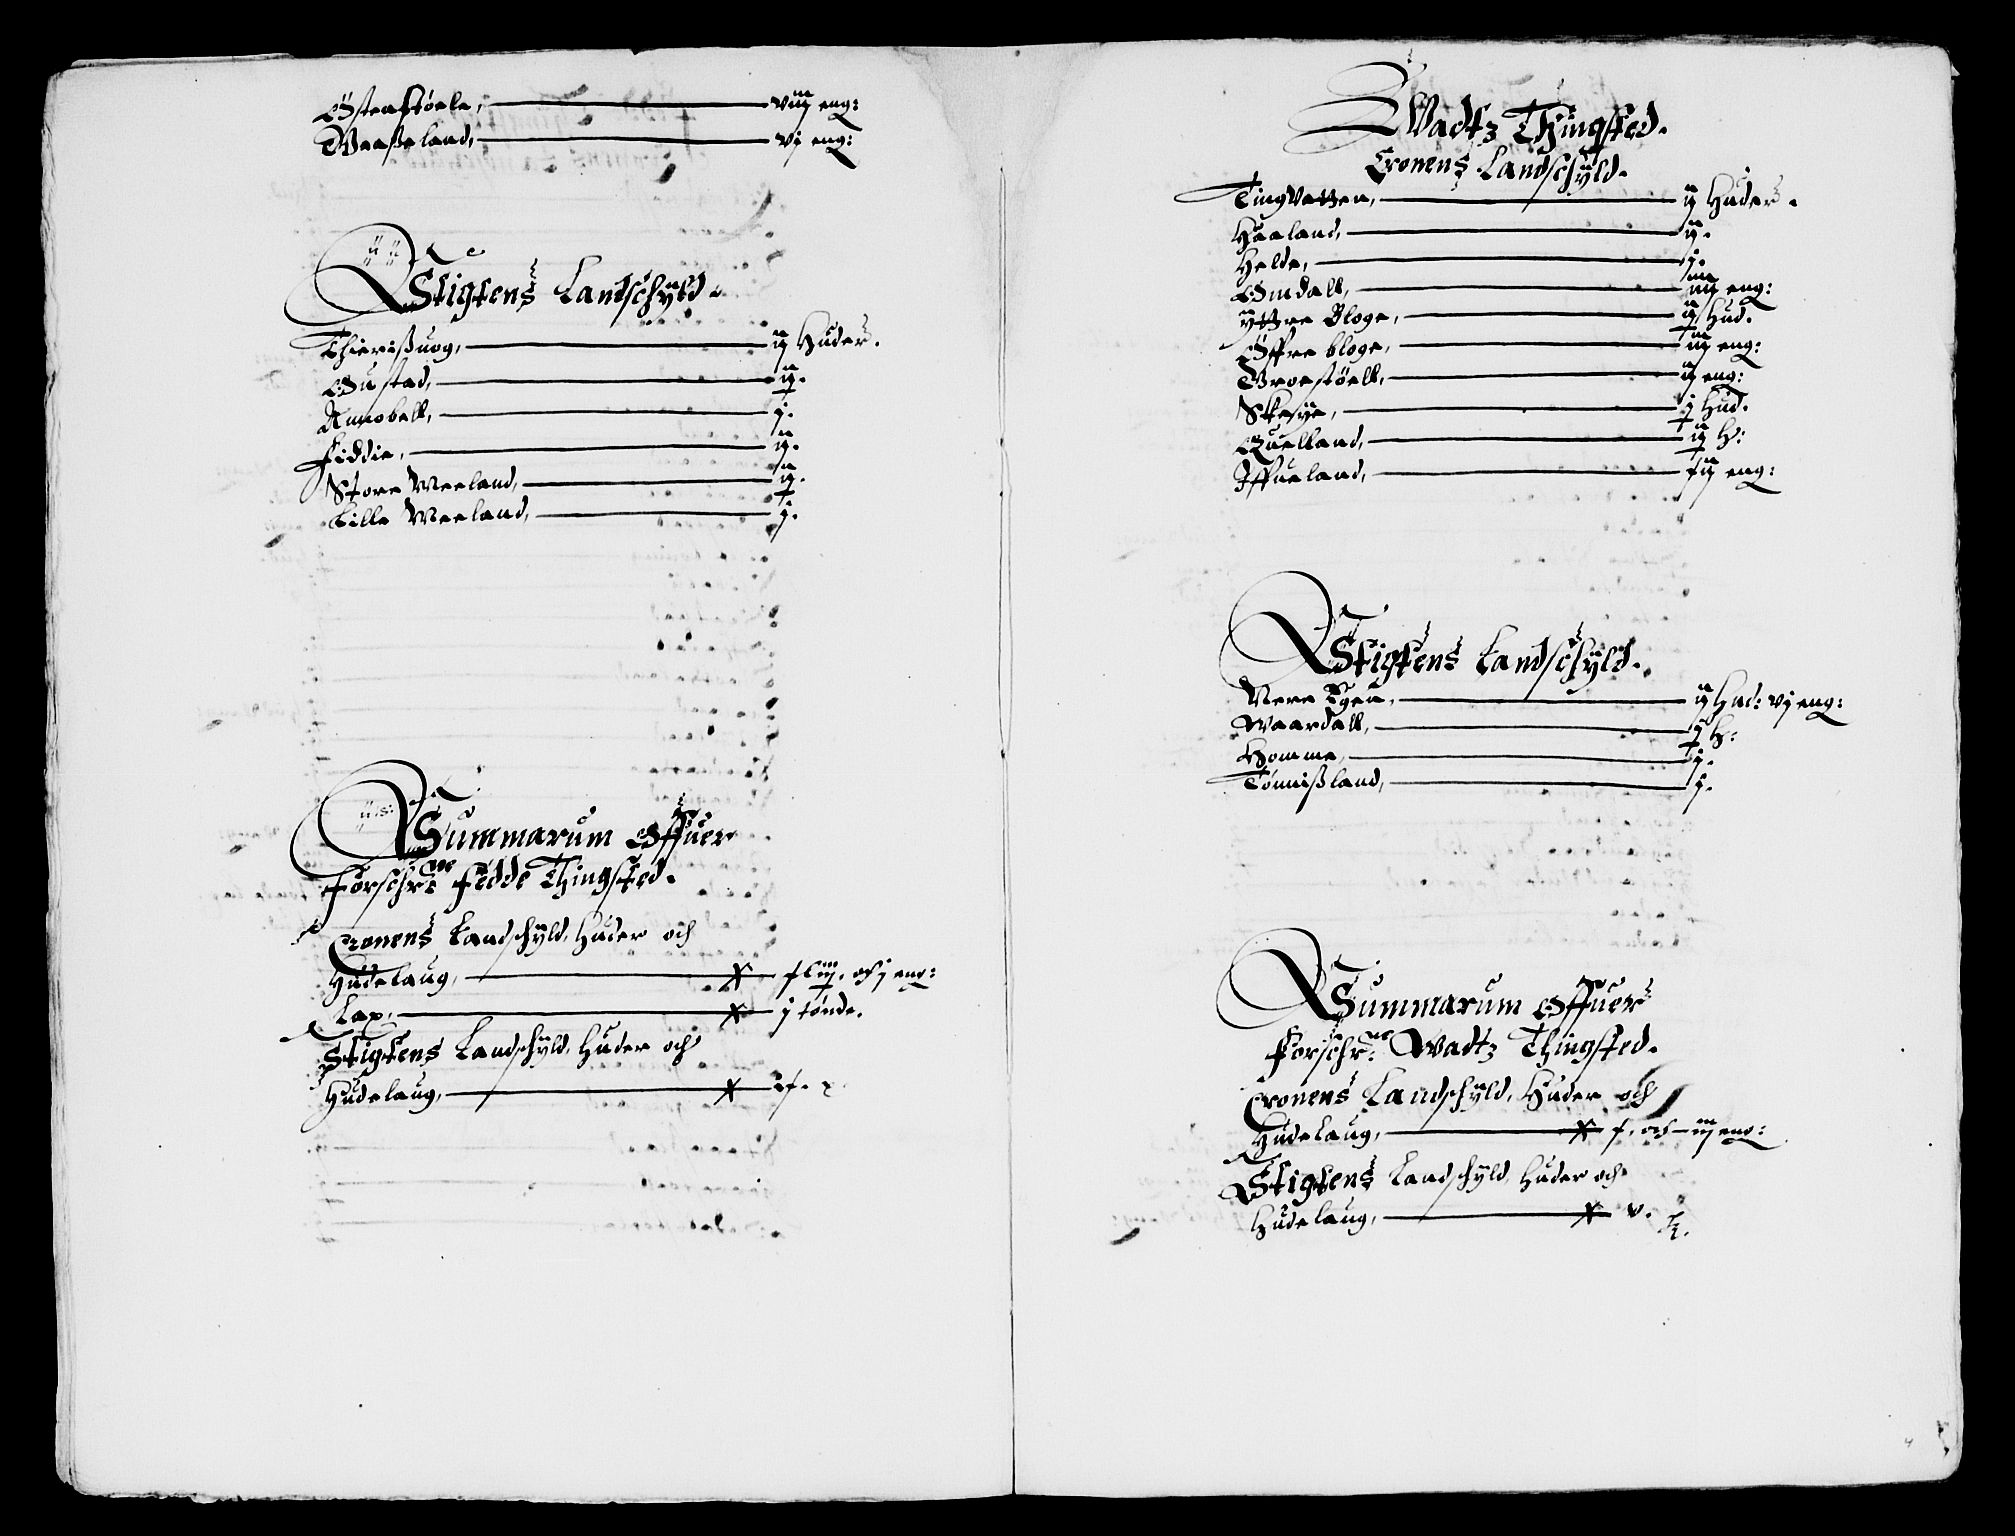 Østestøele, viij eng:
Waaßeland, vj eng:
Stigtens Landschyld.
Thierißuog, ij Huder.
Gustad, ij.
Annobell, j.
Fiddie, ij.
Store Meeland, ij.
Lille Meeland, j.
Summarum Offuer
Forschr:ne Fedde Thingsted.
Cronens Landschyld, Huder och
Hudelaug, och j eng:
Lax, j tønde.
Stigtens Landschyld, Huder och
Hudelaug,
Wadtz Thingsted.
Cronens Landschyld.
Tingvatten, ij Huder.
Haaland, ij.
Helde, j.
Omdall, iiij eng:
yttre Bloge, ij Hud.
Øffre bloge, iij eng:
Vroestøell, ij eng:
Skeye, j Hud.
Quelland, ij H:
Iffueland, eng:
Stigtens Landschyld.
Nere Egen, ij Hud: vj eng:
Waardall, j H:
Homme, j.
Tønnißland, j.
Summarum Offuer
Forschr:ne Wadtz Thingsted.
Cronens Landschyld, Huder och
Hudelaug, och iij eng:
Stigtens Landschyld, Huder och
Hudelaug, v.